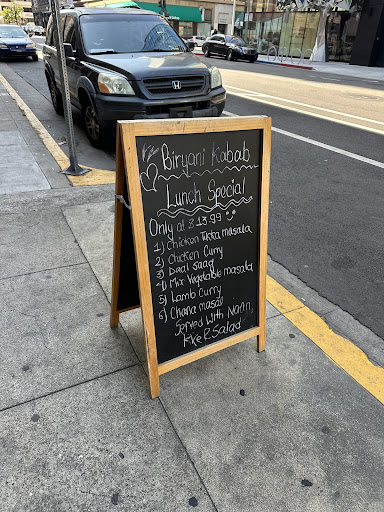 Biryani Kabab
Lunch Special
Only at $ 13.99
1) Chicken Tikka masala
2) Chicken Curry
3) Daal saag
4) Mix Vegetable masala
5) Lamb Curry
6) Chana masala
Served With Naan,
Rice & Salad